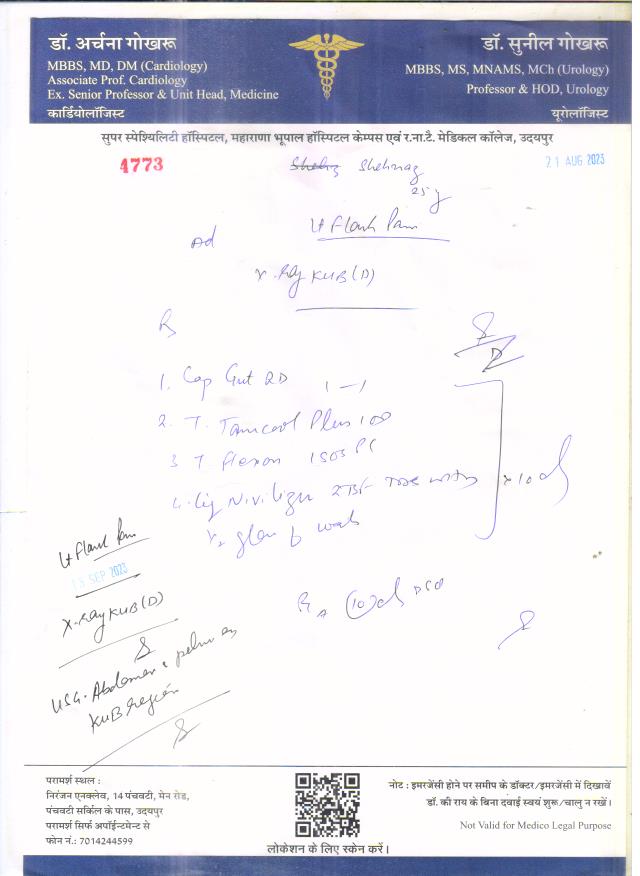 डॉ. अर्चना गोखरू
MBBS, MD, DM (Cardiology)
Associate Prof. Cardiology
Ex. Senior Professor & Unit Head, Medicine
कार्डियोलॉजिस्ट
डॉ. सुनील गोखरू
MBBS, MS, MNAMS, MCh (Urology)
Professor & HOD, Urology
यूरोलॉजिस्ट
सुपर स्पेशियलिटी हॉस्पिटल, महाराणा भूपाल हॉस्पिटल केम्पस एवं र.ना.टै. मेडिकल कॉलेज, उदयपुर
4773
Shehnaz
21 AUG 2023
25 y
Lt Flank Pain
Ad
X-Ray KUB (D)
R
1. Cap Gut RD 1-1
2. T. Tamcool Plus 100
3 T flexon
4. Liq N.V. x 10 d
1/2 glass
Lt Flank Pain
13 SEP 2023
X-Ray KUB (D)
USG. Abdomen
KUB region
परामर्श स्थल :
निरंजन एनक्लेव, 14 पंचवटी, मेन रोड,
पंचवटी सर्किल के पास, उदयपुर
परामर्श सिर्फ अपॉईन्टमेन्ट से
फोन नं.: 7014244599
लोकेशन के लिए स्केन करें।
नोट : इमरजेंसी होने पर समीप के डॉक्टर/इमरजेंसी में दिखावें
डॉ. की राय के बिना दवाई स्वयं शुरू/चालु न रखें।
Not Valid for Medico Legal Purpose